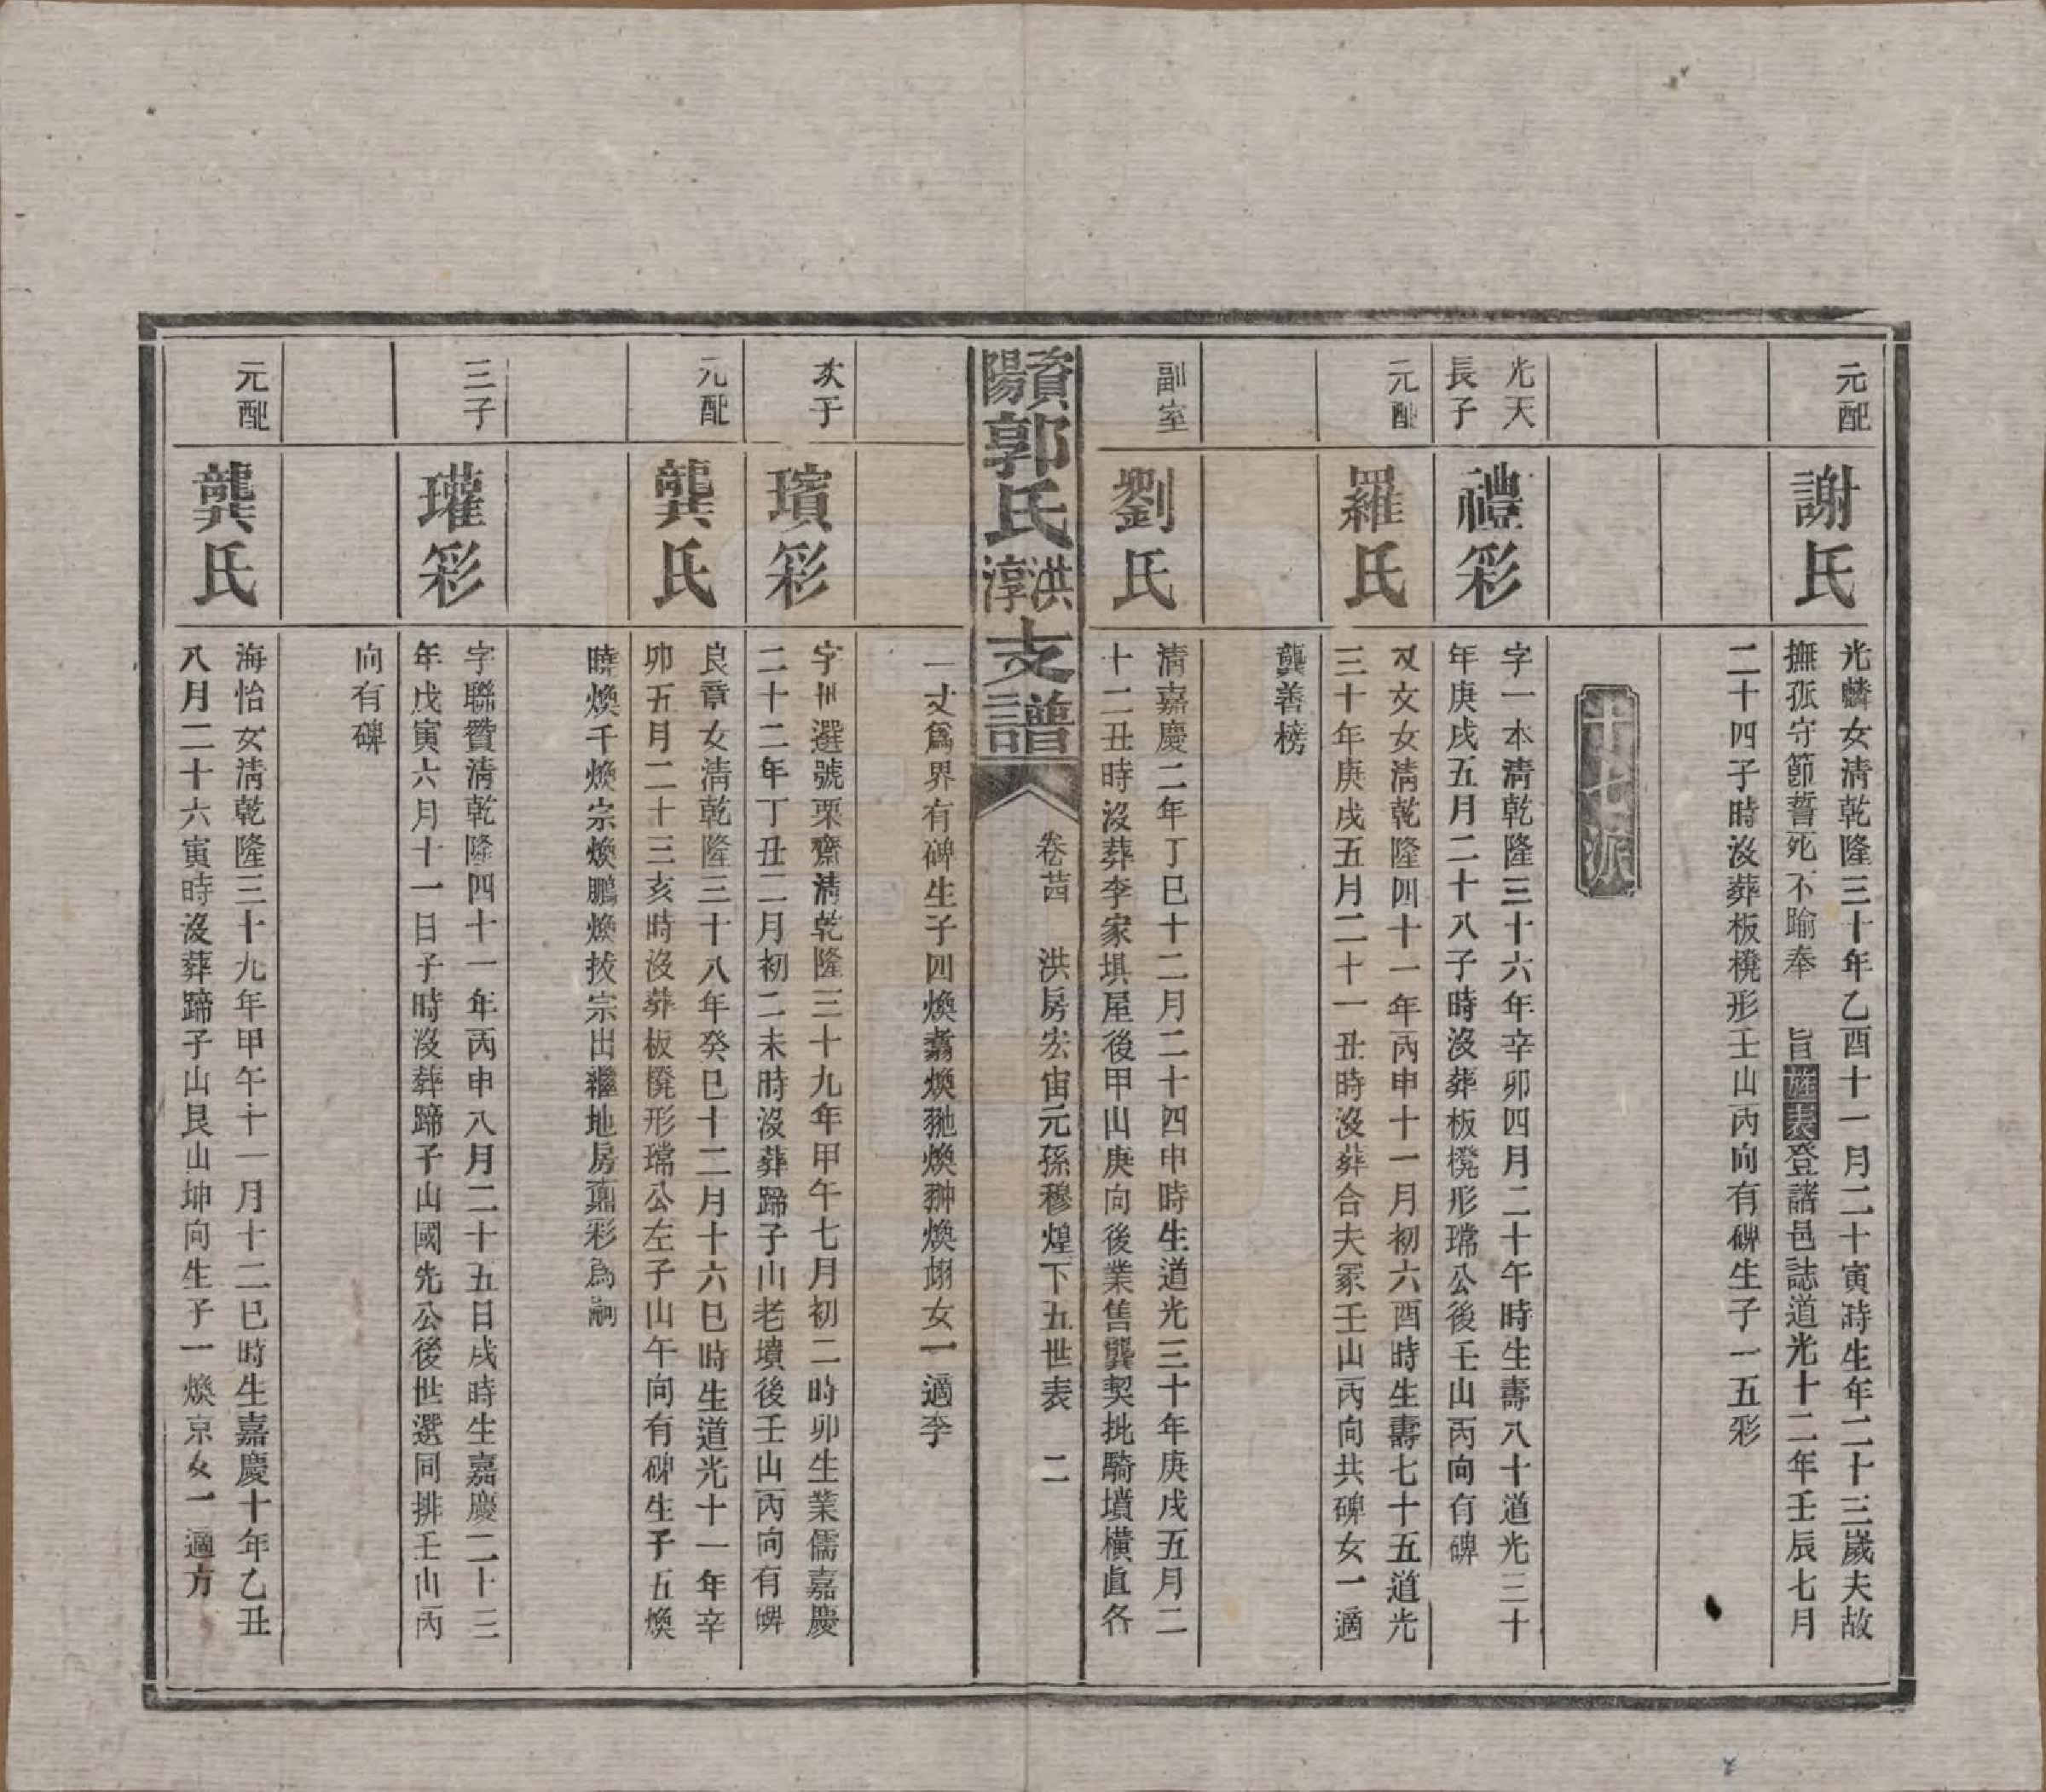 元配
謝氏
光麟女淸乾隆三十年乙酉十一月二十寅時生年二十三歲夫故
撫孤守節誓死不踰奉　旨旌表登諸邑誌道光十二年壬辰七月
二十四子時沒葬板櫈形壬山丙向有碑生子一五彩
十七派
光天
長子
禮彩
字一本淸乾隆三十六年辛卯四月二十午時生壽八十道光三十
年庚戌五月二十八子時沒葬板櫈形璫公後壬山丙向有碑
元配
羅氏
文女淸乾隆四十一年丙申十一月初六酉時生壽七十五道光
三十年庚戌五月二十一丑時沒葬合夫冢壬山丙向共碑女一適
龔善榜
副室
劉氏
淸嘉慶二年丁巳十二月二十四申時生道光三十年庚戌五月二
十二丑時沒葬李家埧屋後甲山庚向後業售龔契批騎墳橫直各
資陽郭氏洪淳支譜
卷茜　洪房宏宙元孫穆煌下五世表　二
一丈爲界有碑生子四煥翥煥翀煥翊女一適李
次子
璸彩
字選號栗齋淸乾隆三十九年甲午七月初二時卯生業儒嘉慶
二十二年丁丑二月初二未時沒葬蹄子山老墳後壬山丙向有碑
元配
龔氏
良章女淸乾隆三十八年癸巳十二月十六巳時生道光十一年辛
卯五月二十三亥時沒葬板櫈形璫公左子山午向有碑生子五煥
曉煥千煥宗煥鵬煥拔宗出繼地房彩爲嗣
三子
瓘彩
字聯贊淸乾隆四十一年丙申八月二十五日戌時生嘉慶二十三
年戊寅六月十一日子時沒葬蹄子山國先公後世選同排壬山丙
向有碑
元配
龔氏
海怡女淸乾隆三十九年甲午十一月十二巳時生嘉慶十年乙丑
八月二十六寅時沒葬蹄子山艮山坤向生子一煥京女一適方